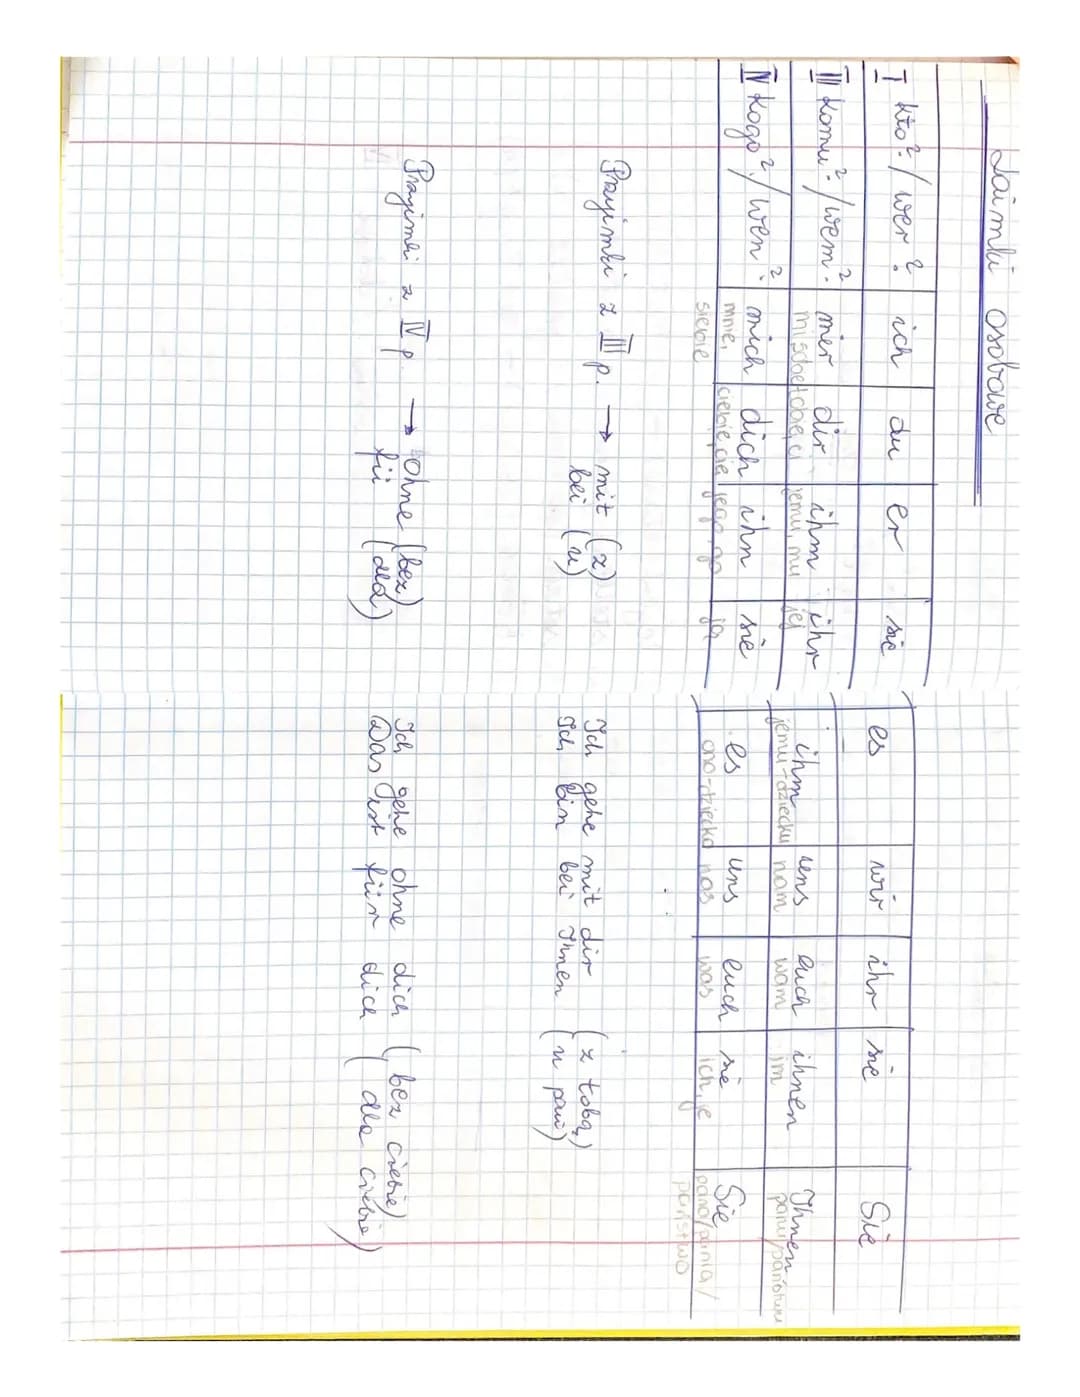 Zaimki osobowe
I kto?/wer? ich du er sie es wir ihr sie Sie
III komu?/wem? mir dir ihm ihr ihm uns euch ihnen Ihnen
mi, sobie tobie, ci jemu, mu jej jemu-dziecku nam wam im panu/państwu
IV kogo?/wen? mich dich ihn sie es uns euch sie Sie
mnie, ciebie, cię jego, go ją ono-dziecko nas was ich, je pana/pania/
siebie państwo
Przyimki z III p. → mit (z) Ich gehe mit dir (z tobą)
bei (u) Ich bin bei Ihnen (u pani)
Przyimki z IV p. → ohne (bez) Ich gehe ohne dich (bez ciebie)
für (dla) Das ist für dich (dla ciebie)